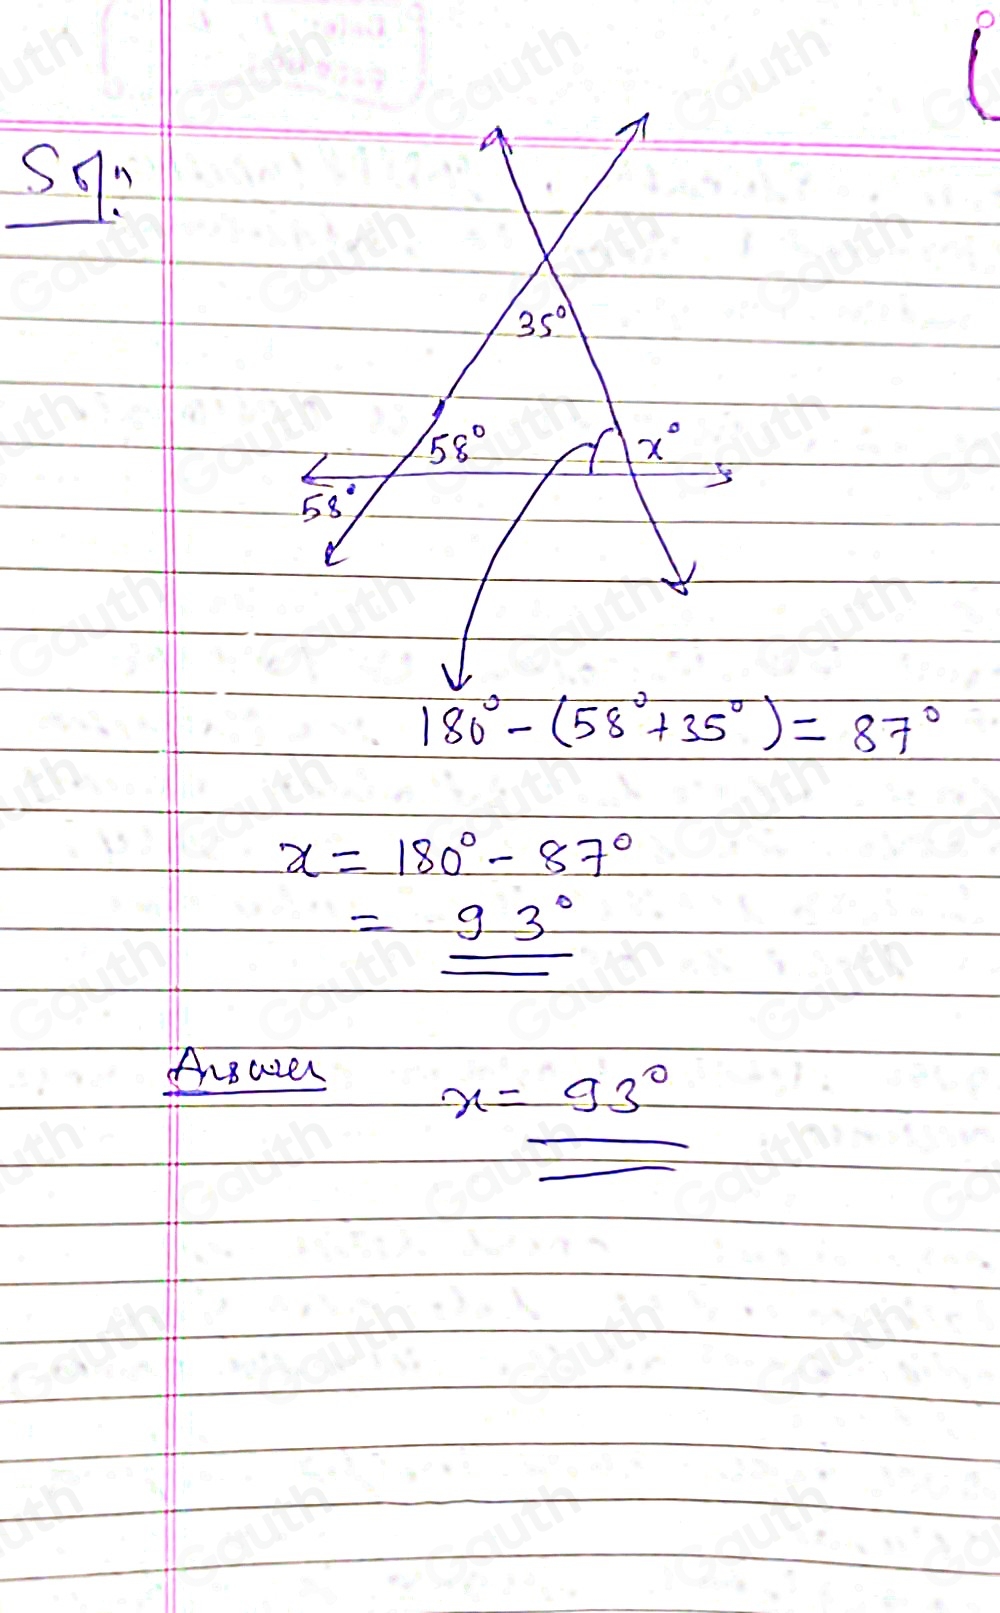 Soln:
35°
58°
x°
58°
180° - (58° + 35°) = 87°
x = 180° - 87°
= 93°
Answer
x = 93°